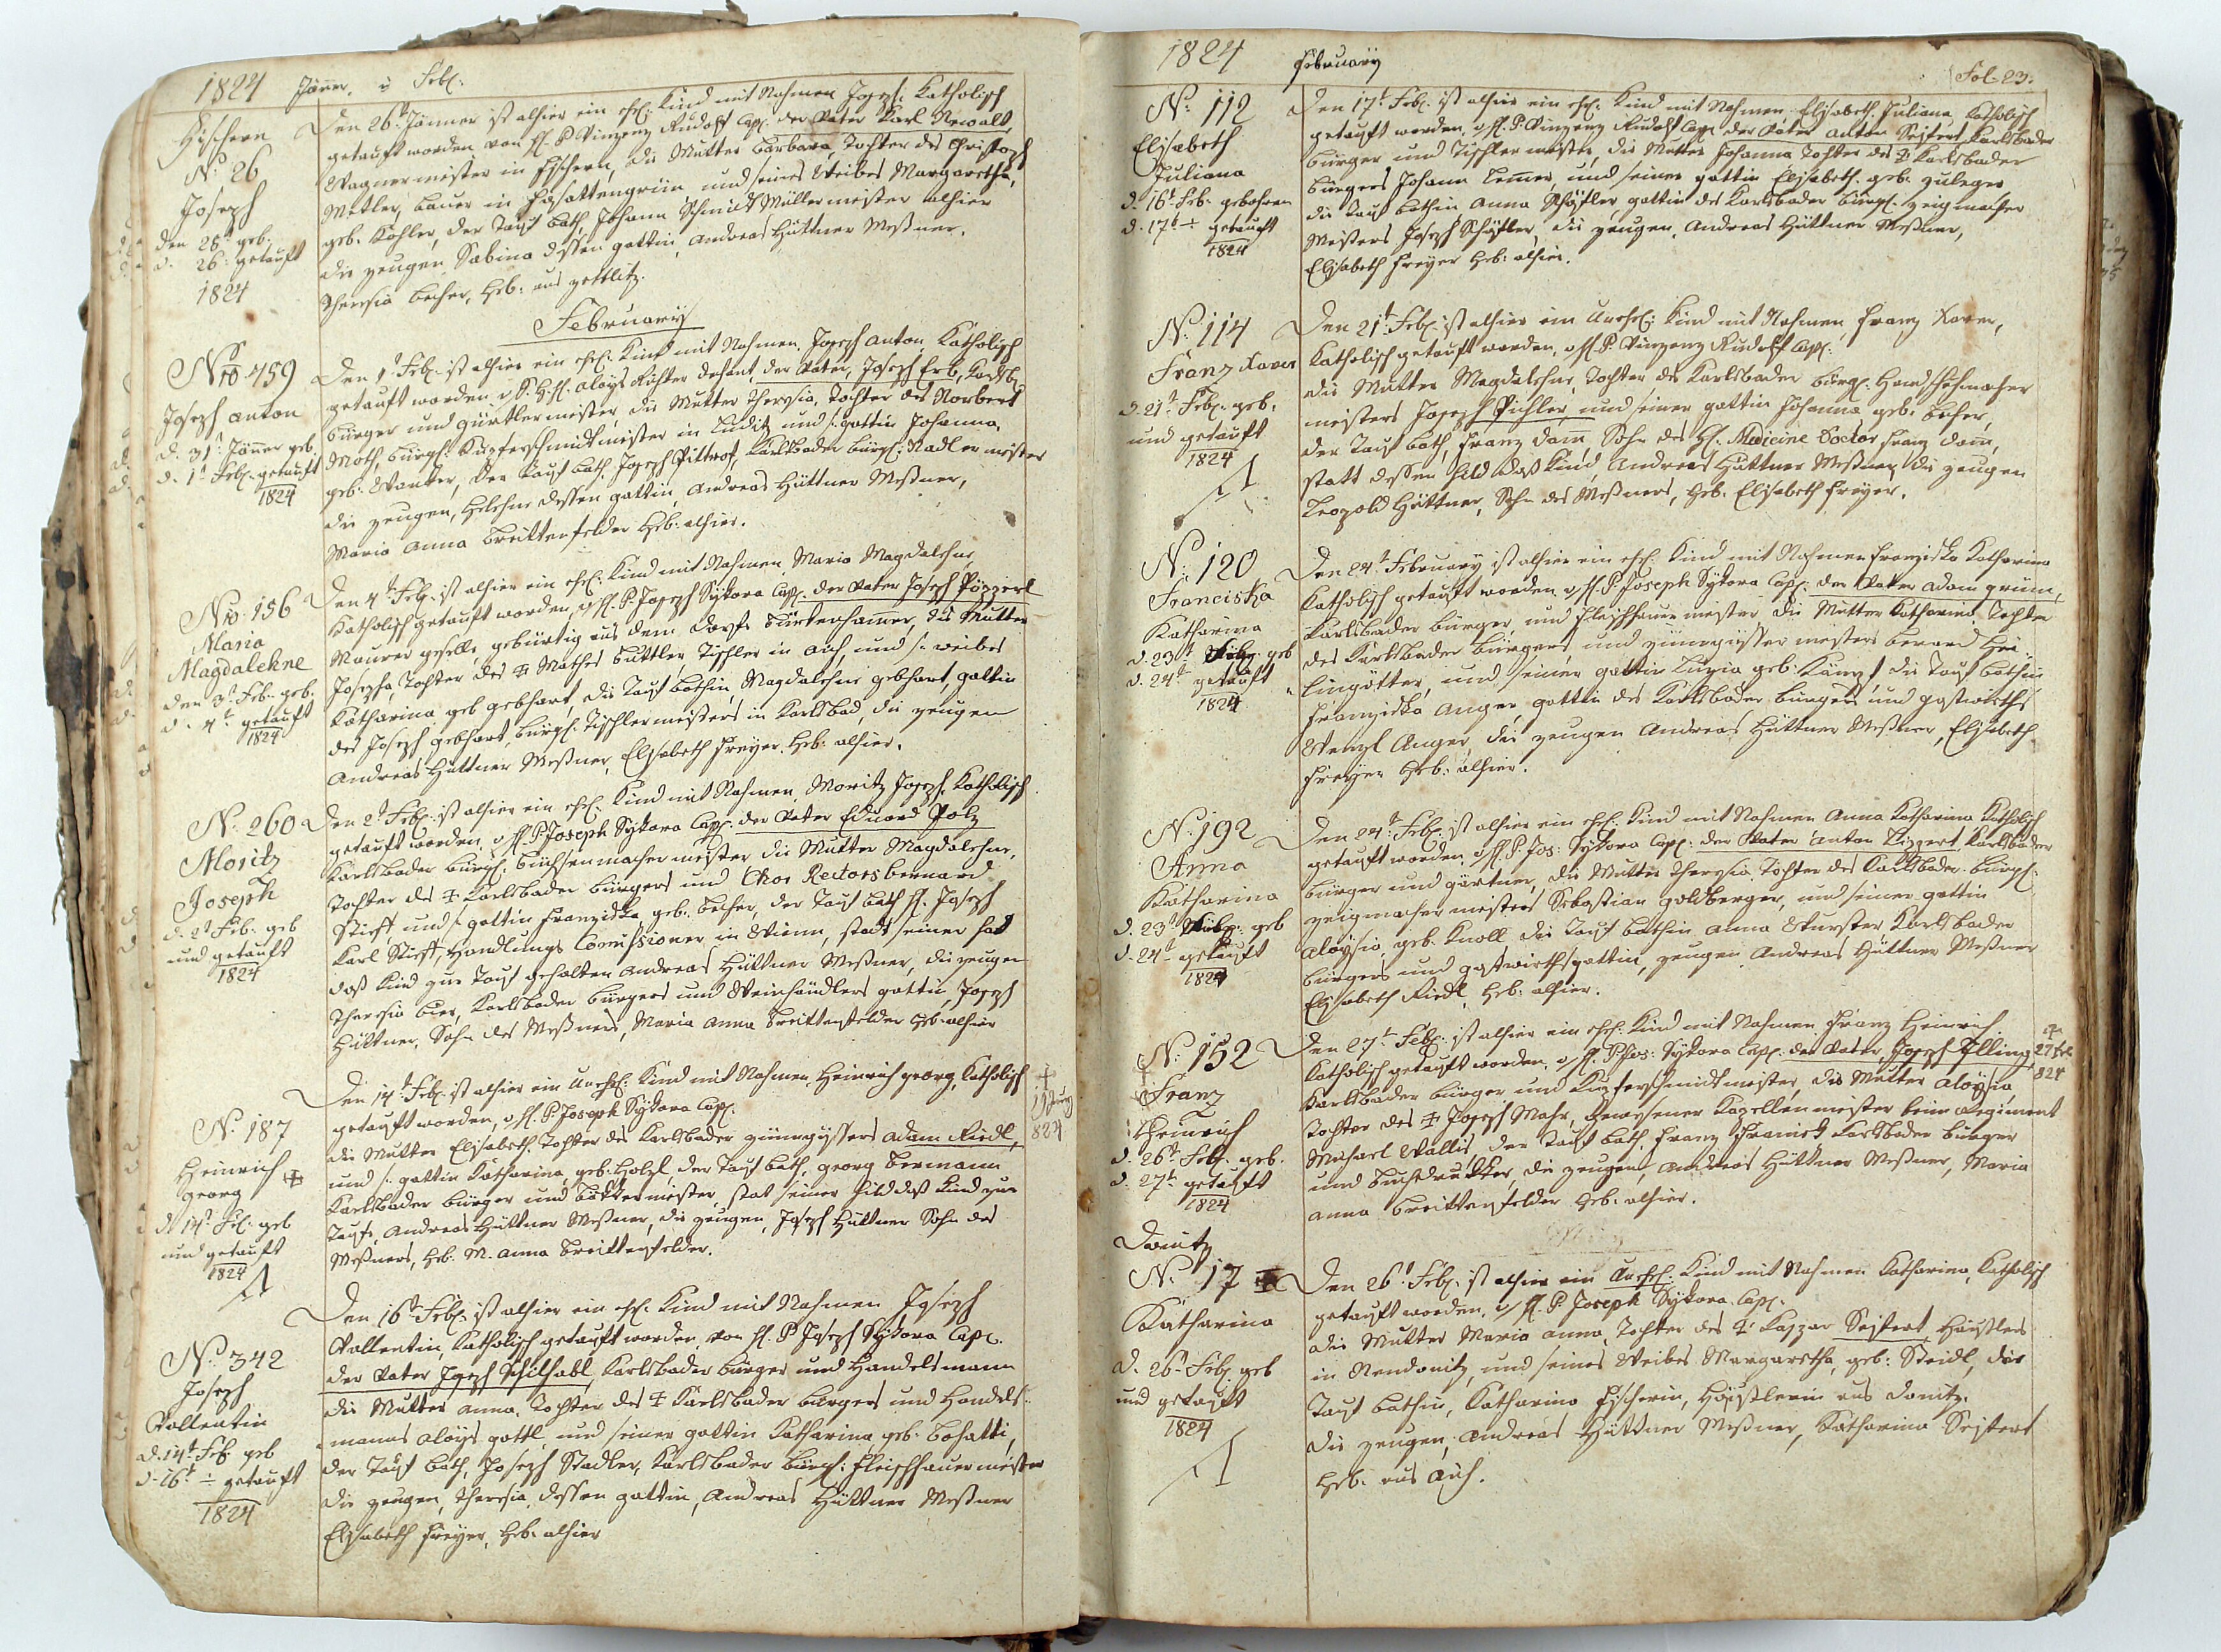 1824 Jänner. u Feb:
Fischern
N: 26
Joseph
den 26t geb.
d. 26t getauft
1824
Den 26t Jänner ist alhier ein ehel: Kind mit Nahmen Joseph: Katholisch
getauft worden von H. P. Vinzenz Rudolf Cap: der Vater Karl Newalt,
Wagnermeister in Fischern, die Mutter Barbara, Tochter des Christoph
Metler, bauer in und seines Weibes Margaretha,
geb. Köhler, der Tauf bath, Johann Schmidt Müllermeister alhier
die zeugen Sabina dessen gattin, Andreas Hüttner Meßner,
Theresia becher, Heb: aus zettlitz.
February
Nro 759
Joseph Anton
d. 31t Jänner geb.
d. 1t Feb: getauft
1824
Den 1t Feb: ist alhier ein ehel: Kind mit Nahmen, Joseph Anton Katholisch
getauft worden v. P. H. H. Aloys Richter Dehant, der Vater, Joseph Erb, Karlsb:
bürger und Gürtlermeister, die Mutter Theresia, Tochter des Norbert
Moth, bürgl: Kupferschmidtmeister in Luditz und s: gattin Johanna,
geb: Wanker, Der Tauf bath, Joseph Pittrof, Karlsbader bürgl: Nadlermeister
die zeugen, Helehne dessen gattin, Andreas Hüttner Meßner,
Maria Anna Breittenfelder Heb: alhier.
Nro 156
Maria
Magdalehne
den 3t Feb: geb.
d. 4t getauft
1824
Den 4t Feb: ist alhier ein ehel: Kind mit Nahmen Maria Magdalehne,
Katholisch getauft worden, v H. P. Joseph Sykora Cap: der Vater Joseph Pözzerl
Maurer geselle, gebürtig aus dem Dorfe die Mutter
Josepha, Tochter des ‡ Mathes Buttler Tischler in Aich, und s: weibes
Katharina geb gebhart, die Tauf bathin, Magdalehne gebhart, gattin
des Joseph gebhart, bürgl: Tischlermeisters in Karlsbad, die zeugen
Andreas Hüttner Meßner, Elisabeth Freyer. Heb: alhier.
N: 260
Moritz
Joseph
d. 2t Feb: geb
und getauft
1824
Den 2t Feb: ist alhier ein ehel: Kind mit Nahmen, Moritz Joseph: Katholisch
getauft worden, v H. P. Joseph Sykora Cap: der Vater Eduard Polz
Karlsbader bürgl: Büchsenmachermeister die Mutter Magdalehne,
Tochter des ‡ Karlsbader bürgers und Chor Rectors Bernard
Steff und s: gattin Franziska geb. Becher, der Tauf bath H. Joseph
Karl Steff, Handlungs Comissioner in Wienn, statt seiner hat
daß Kind zur Tauf gehalten Andreas Hüttner Meßner, die zeugen
Theresia bier, Karlsbader bürgers und Weinhändlers gattin, Joseph
Hüttner, Sohn des Meßners, Maria Anna Breittenfelder Heb: alhier
N: 187
Heinrich
georg
d. 14t Feb: geb
und getauft
1824
Den 14t Feb: ist alhier ein Unehel: Kind mit Nahmen, Heinrich georg, Katholisch
getauft worden, v H. P. Joseph Sykora Cap:
die Mutter Elisabeth, Tochter des Karlsbader zinngüssers Adam Riedl,
und s: gattin Katharina, geb: Holzl, der Tauf bath, georg Bermann
Karlsbader bürger und bäkkermeister, stat seiner hild daß Kind zur
Taufe, Andreas Hüttner Meßner, die zeugen, Joseph Hüttner Sohn des
Meßners, Heb: M. Anna Breittenfelder.
824
N: 342
Joseph
Vallentin
d. 14t Feb geb
d. 16t ÷ getauft
1824
Den 16t Feb: ist alhier ein ehel: Kind mit Nahmen Joseph
Vallentin, Katholisch getauft worden, von H. P. Joseph Sykora Cap:
der Vater Joseph Schilhabl, Karlsbader bürger und Handelsmann
die Mutter Anna, Tochter des ‡ Karlsbader bürgers und Handels:
manns Aloys gottl, und seiner gattin Katharina geb: Lohatti,
der Tauf bath, Joseph Stadler, Karlsbader bürgl: Fleischhauermeister
die zeugen, Theresia, dessen gattin, Andreas Hüttner Meßner
Elisabeth Freyer, Heb: alhier
1824 February
Fol. 23.
N: 112
Elisabeth
Juliana
d. 16t Feb: gebohren
d. 17t ÷ getauft
1824
Den 17t Feb: ist alhier ein ehel: Kind mit Nahmen, Elisabeth Juliana, Katholisch
getauft worden, v H. P. Vinzenz Rudolf Cap: der Vater Anton Seifert Karlsbader
bürger und Tischlermeister, die Mutter Johanna Tochter des ‡ Karlsbader
bürgers Johann Lemer, und seiner gattin Elisabeth. geb: zuleger
die Tauf bathin Anna Schöstler, gattin des Karlsbader bürgl: zeigmacher
Meisters Joseph Schöstler, die zeugen. Andreas Hüttner Meßner,
Elisabeth Freyer Heb: alhier.
N: 114
Franz Xaver
d. 21t Feb: geb:
und getauft
1824
Den 21t Feb: ist alhier ein Unehel: Kind mit Nahmen, Franz Xaver,
Katholisch getauft worden, v H. P. Vinzenz Rudolf Cap:
die Mutter Magdalehne, Tochter des Karlsbader bürgl: Handschuhmacher
meisters Joseph Pichler, und seiner gattin Johanna geb: becher,
der Tauf bath, Franz Dam, Sohn des H: Medicine Doctor Franz Dam,
statt dessen hild daß Kind, Andreas Hüttner Meßner, die zeugen
Leopold Hüttner, Sohn des Meßners, Heb: Elisabeth Freyer.
N: 120
Franciska
Katharina
d. 23t Feb: geb
d. 24t getauft
1824
Den 24t February ist alhier ein ehel: Kind mit Nahmen Franziska Katharina
Katholisch getauft worden, v H. P. Joseph Sykora Cap: der Vater Adam grünn,
Karlsbader bürger, und Fleischhauer meister, die Mutter Katharina, Tochter
des Karlsbader bürgers und zinngüsser meisters Berard Hei:
lingötter, und seiner gattin Luzia geb: Kämpf die Tauf bathin
Franziska Anger, gattin des Karlsbader bürgers und gastwirths
Wenzl Anger, die zeugen Andreas Hüttner Meßner, Elisabeth
Freyer Heb: alhier.
N: 192
Anna
Katharina
d. 23t Feb: geb
d. 24t getauft
1824
Den 24t Feb: ist alhier ein ehel: Kind mit Nahmen Anna Katharina Katholisch
getauft worden, v H. P. Jos: Sykora Cap: der Vater Anton Lippert, Karlsbader
bürger und gärtner, die Mutter Theresia, Tochter des Karlsbader bürgl:
zeigmachermeisters Sebastian goldberger, und seiner gattin
Aloysia, geb: Knoll, die Tauf bathin Anna Wurster Karlsbader
bürgers und gastwirthsgattin, zeugen, Andreas Hüttner Meßner
Elisabeth Riedl, Heb: alhier.
N: 152
Franz
Heinrich
d. 26t Feb: geb.
d. 27t getauft
1824
Den 27t Feb: ist alhier ein ehel: Kind mit Nahmen, Franz Heinrich
Katholisch getauft worden, v H. P. Jos: Sykora Cap: der Vater Joseph Illing,
Karlsbader bürger und Kupferschmidtmeister, die Mutter Aloysia
Tochter des ‡ Joseph Mahr, gewesener Kapellenmeister beim Regiment
Michael Wallis, der Tauf bath, Franz Franick Karlsbader bürger
und buchdrukker, die zeugen, Andreas Hüttner Meßner, Maria
Anna Breittenfelder Heb: alhier.
27 Feb
824
Donitz
N: 17
Katharina
d. 26t Feb: geb
und getauft
1824
Den 26t Feb: ist alhier ein Unehel: Kind mit Nahmen Katharina, Katholisch
getauft worden, v H. P. Joseph Sykora Cap:
die Mutter Maria Anna, Tochter des ‡ Kaspar Seifert, Häuslers
in Neudonitz, und seines Weibes Margaretha, geb: Steidl, die
Tauf bathin, Katharina Fischerin, Häuslerin aus Donitz.
die zeugen, Andreas Hüttner Meßner, Katharina Seifert
Heb: aus Aich.